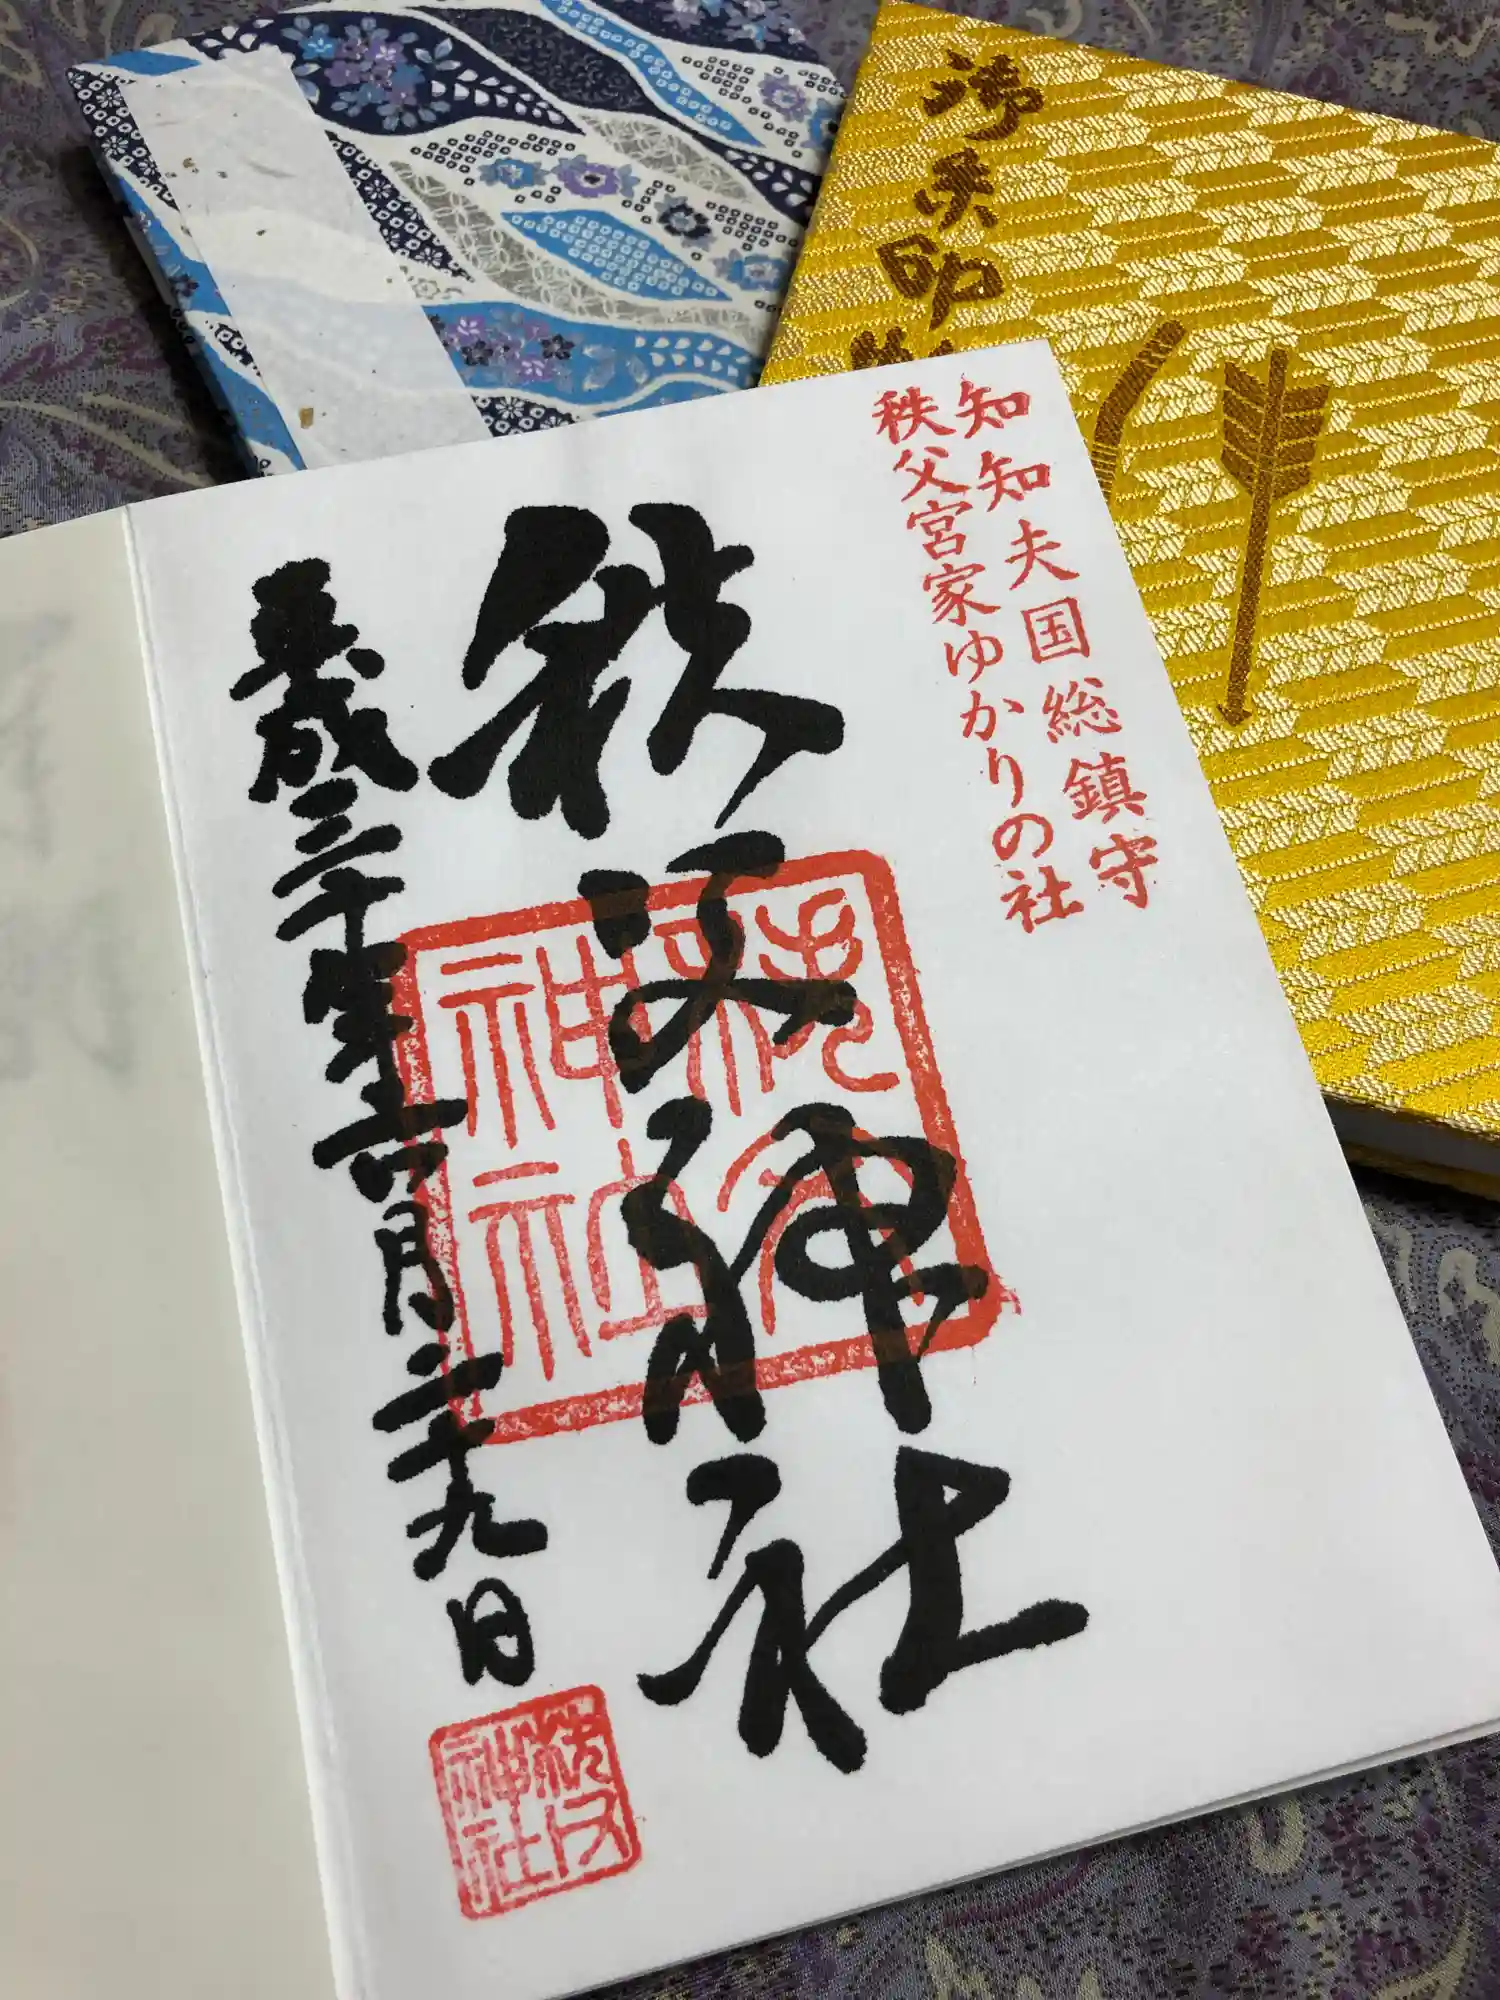 御朱印帳
知知夫国総鎮守
秩父宮家ゆかりの社
秩父神社
平成三十年六月二十九日
秩父
神社
秩父
神社